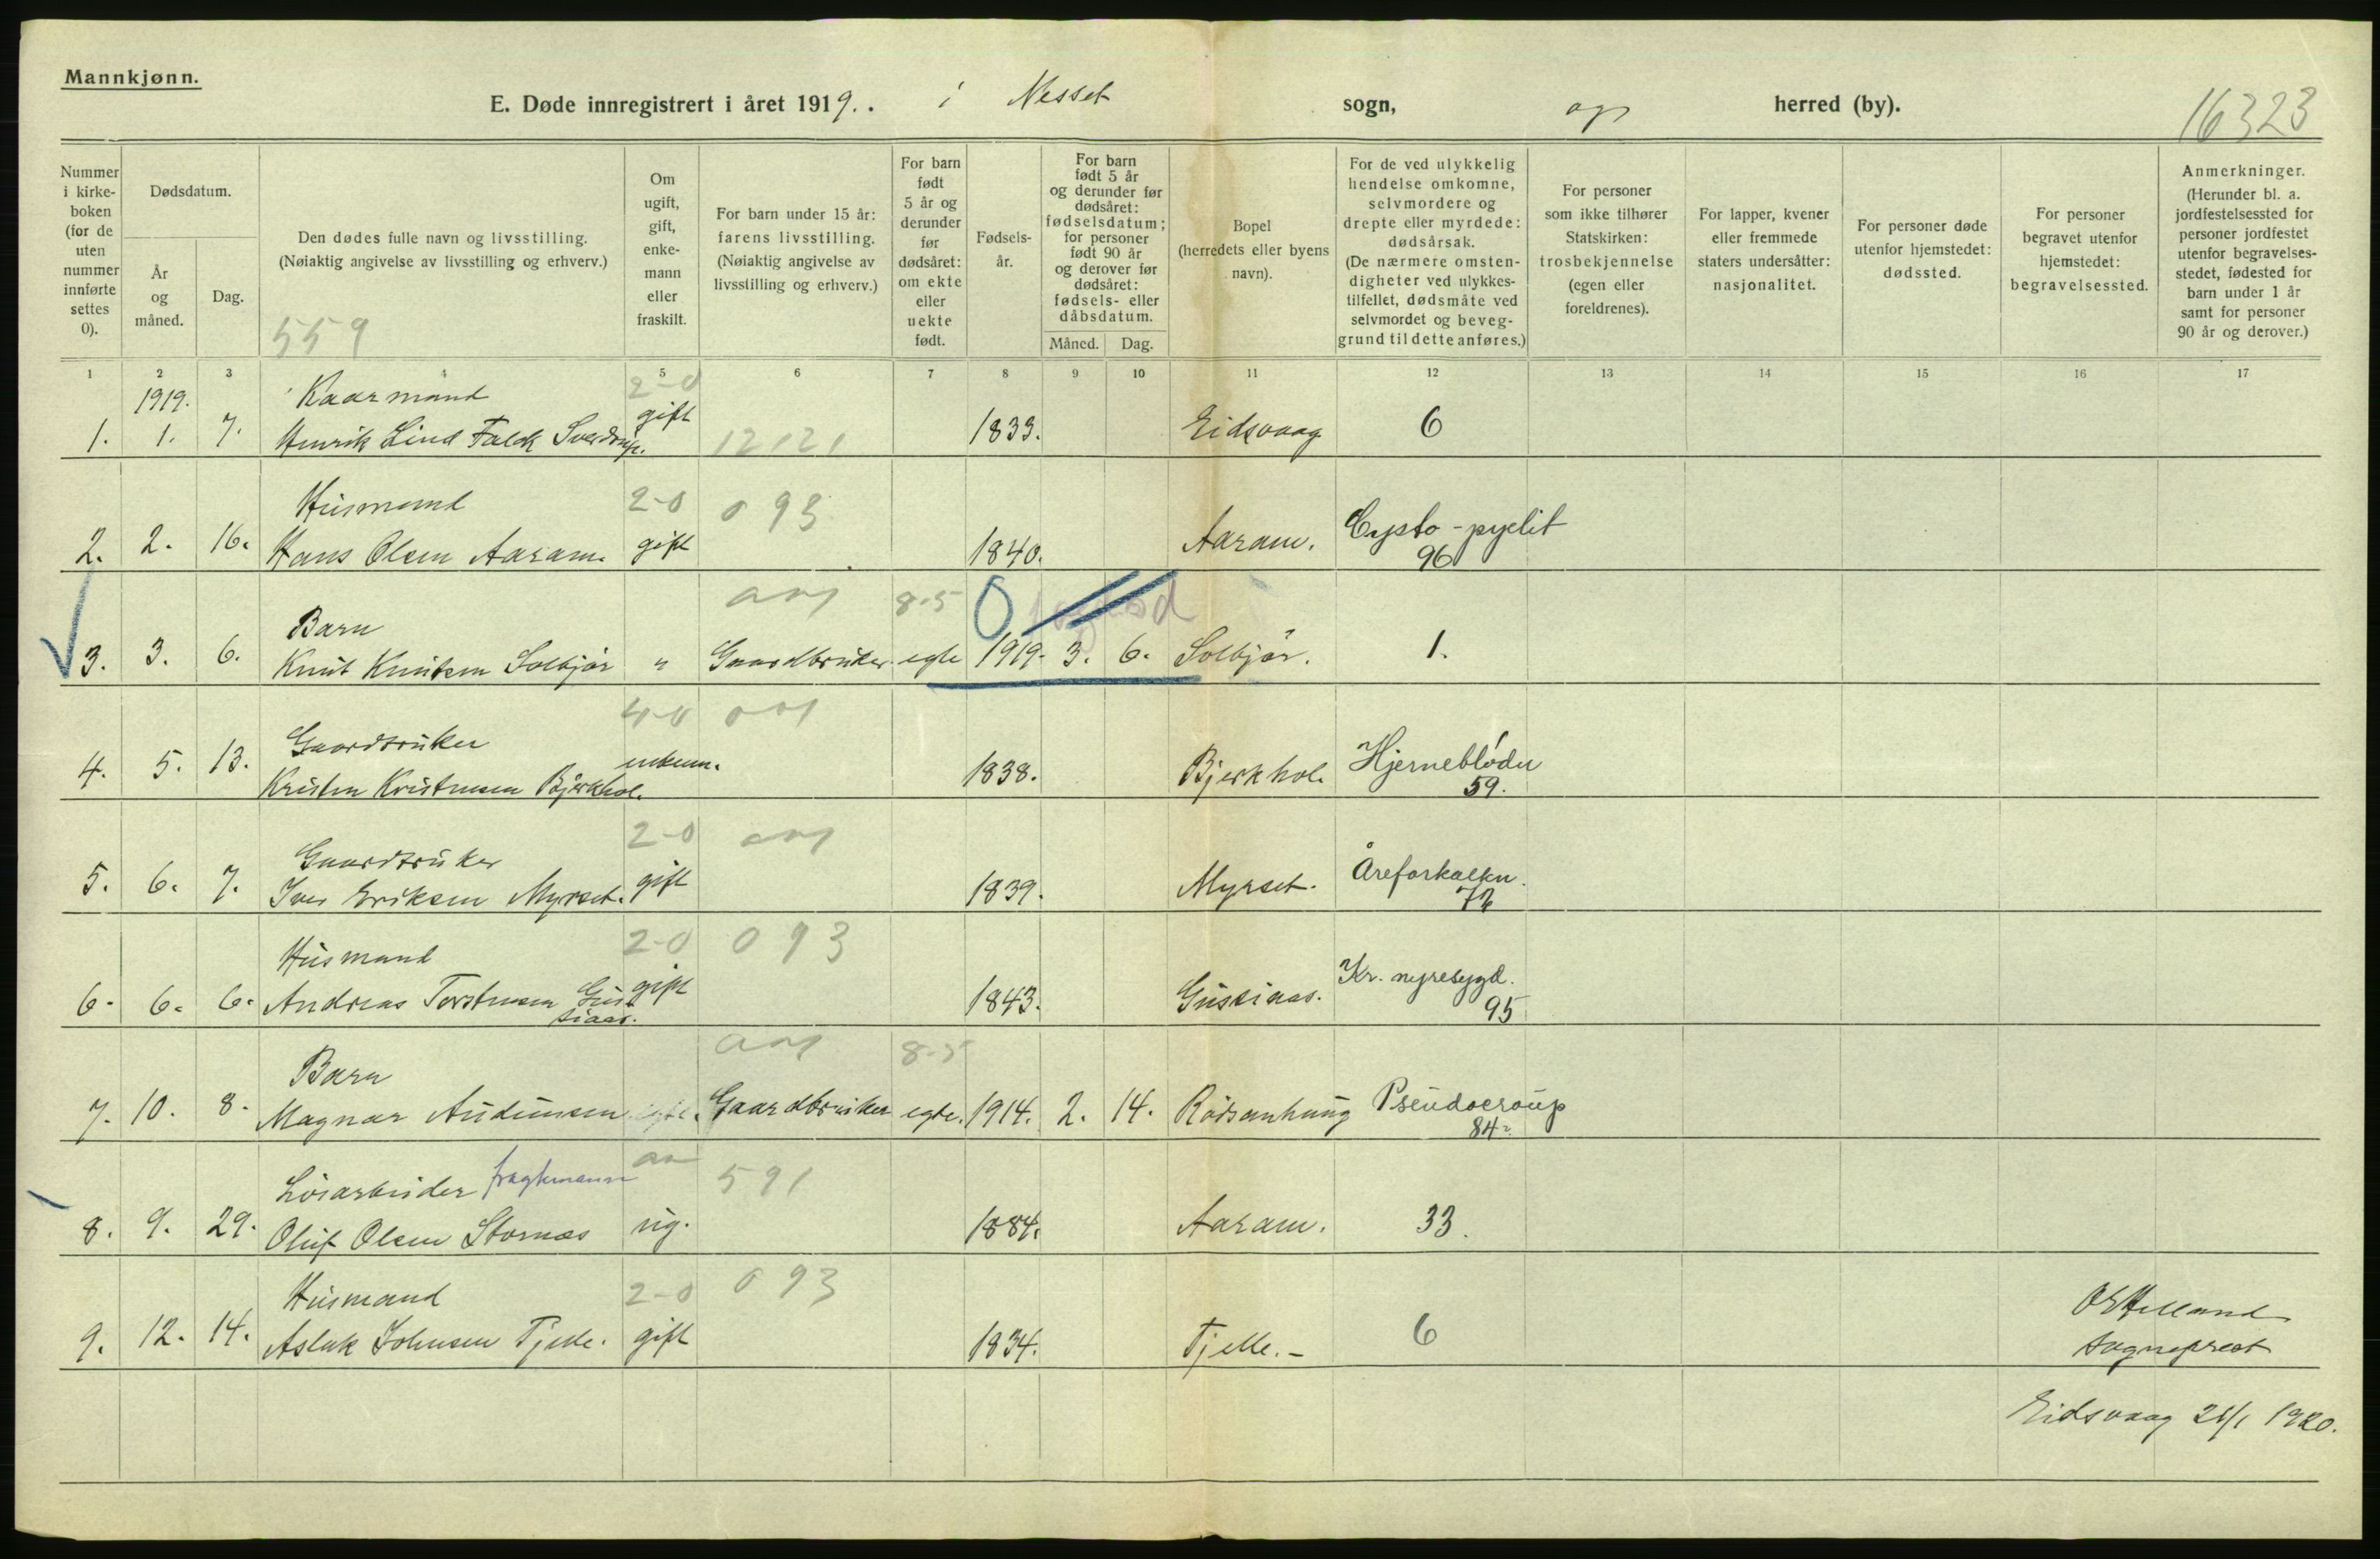 Mannkjønn.
E. Døde innregistrert i året 1919. . i Nesset sogn, og herred (by).
16323
Nummer i kirke- boken (for de uten nummer innførte settes 0).
Dødsdatum.
År og måned.
Dag.
Den dødes fulle navn og livsstilling.
(Nøiaktig angivelse av livsstilling og erhverv.)
559
Om ugift, gift, enke- mann eller fraskilt.
For barn under 15 år: farens livsstilling. (Nøiaktig angivelse av livsstilling og erhverv.)
For barn født 5 år og derunder før dødsåret: om ekte eller uekte født.
Fødsels- år.
For barn født 5 år og derunder før dødsåret: fødselsdatum; for personer født 90 år og derover før dødsåret: fødsels- eller dåbsdatum.
Måned.
Dag.
Bopel (herredets eller byens navn).
For de ved ulykkelig hendelse omkomne, selvmordere og drepte eller myrdede: dødsårsak. (De nærmere omsten- digheter ved ulykkes- tilfellet, dødsmåte ved selvmordet og beveg- grund til dette anføres.)
For personer som ikke tilhører Statskirken: trosbekjennelse (egen eller foreldrenes).
For lapper, kvener eller fremmede staters undersåtter: nasjonalitet.
For personer døde utenfor hjemstedet: dødssted.
For personer begravet utenfor hjemstedet: begravelsessted.
Anmerkninger. (Herunder bl. a. jordfestelsessted for personer jordfestet utenfor begravelses- stedet, fødested for barn under 1 år samt for personer 90 år og derover.)
1 2 3 4 5 6 7 8 9 10 11 12 13 14 15 16 17
1919. Kaarmand 2-0
1. 1. 7. Henrik Lind Falck Sverdrup. gift 12121 1833. Eidsvaag 6
Husmand 2-0 093
2. 2. 16. Hans Olsen Aaram. gift 1840. Aaram. Cysto-pyelit 96
Barn 8-5 0
3. 3. 6. Knut Knutsen Solbjør " Gaardbruker egte 1919. 3. 6. Solbjør. 1.
Gaardbruker 4-0
4. 5. 13. Kristen Kristensen Bjerkhol. enkem. 1838. Bjerkhol. Hjerneblødn 59.
Gaardbruker 2-0
5. 6. 7. Iver Eriksen Myrset. gift 1839. Myrset. Åreforkalkn.
Husmand 2-0 093
6. 6. 6. Andreas Torstensen Gus- siaas. gift 1843. Gussiaas. Kr. nyresygd. 95
Barn 8-5
7. 10. 8. Magnar Audunsen Gaardbruker egte. 1914. 2. 14. Rødsanhaug Pseudocroup 84
Løsarbeider fragtemann 591
8. 9. 29. Oluf Olsen Stornæs ug. 1884. Aaram. 33.
Husmand 2-0 093
9. 12. 14. Aslak Johnsen Tjelle. gift 1834. Tjelle.- 6
Helland
sogneprest
Eidsvaag 1920.